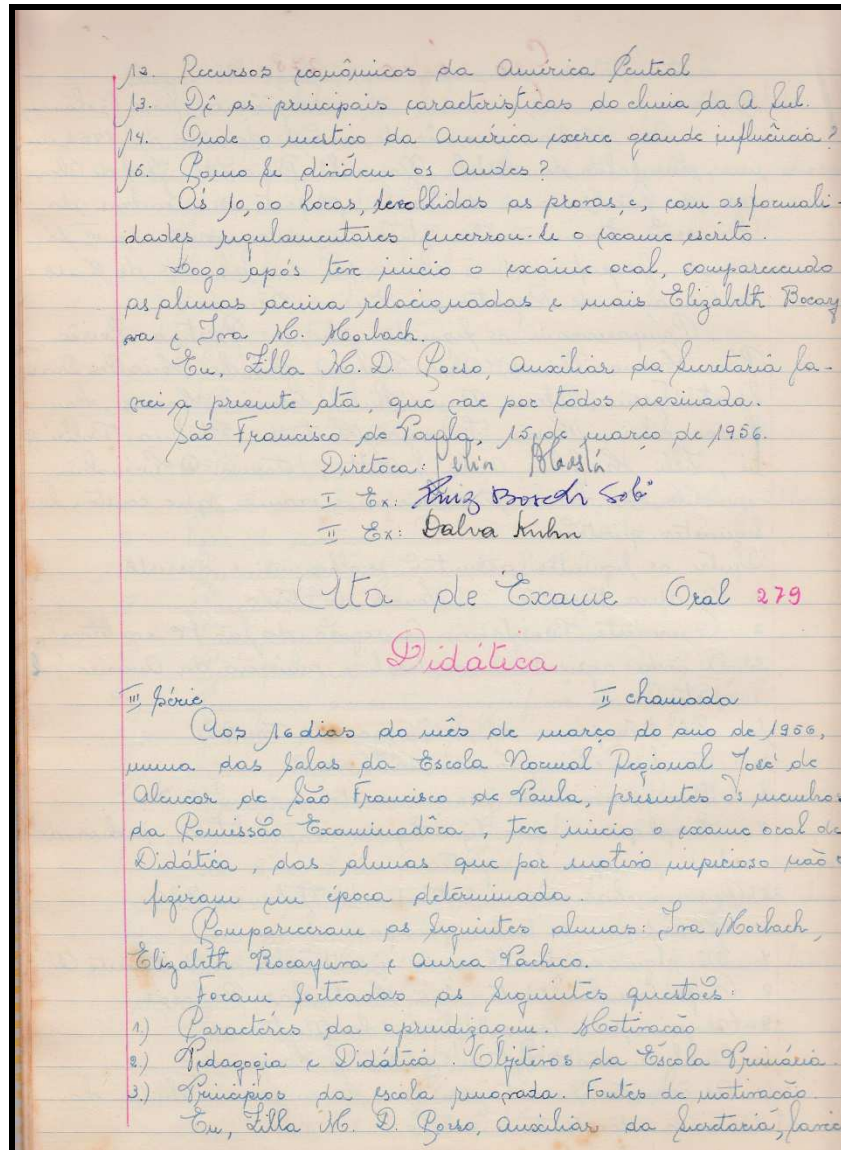 12. Recursos econômicos da América Central
13. Dê as principais caracteristicas do clima da A Sul.
14. Onde o mestico da América exerce grande influência?
15. Como se dividem os Andes?
Ás 10,00 horas, recolhidas as provas, e, com as formali-
dades regulamentares encerrou-se o exame escrito.
Logo após teve inicio o exame oral, comparecendo
as alunas acima relacionadas e mais Elizabeth Bocayu
va e Iva M. Morbach.
Eu, Zilla M. D. Corso, Auxiliar da Secretaria la-
vrei a presente ata, que vae por todos assinada.
São Francisco de Paula, 15 de março de 1956.
Diretora:
I Ex: Boschi
II Ex: Dalva Kuhn
Ata de Exame Oral 279
Didática
III Série II chamada
Aos 16 dias do mês de março do ano de 1956,
numa das salas da Escola Normal Regional José de
Alencar de São Francisco de Paula, presentes os membros
da Comissão Examinadôra, teve inicio o exame oral de
Didática, das alunas que por motivo imperioso não o
fizeram em época determinada.
Compareceram as seguintes alunas: Iva Morbach,
Elizabeth Bocayuva e Aurea Pacheco.
Foram sorteadas as seguintes questões:
1.) Caractéres da aprendizagem. Motivacão
2.) Pedagogia e Didática. Objetivos da Escola Primária.
3.) Principios da escola renovada. Fontes de motivacão.
Eu, Zilla M. D. Corso, Auxiliar da Secretaria, lavrei